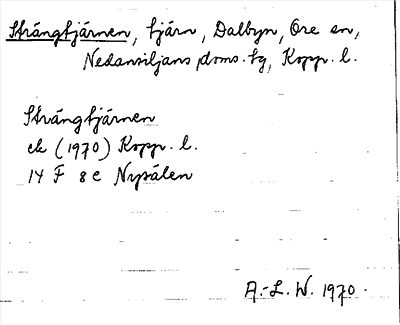 Strängtjärnen, tjärn, Dalbyn, Ore sn,
Nedansiljans doms. tg, Kopp. l.
Strängtjärnen
ek (1970) Kopp. l.
14 F 8 e Nysälen
A.-L. W. 1970.